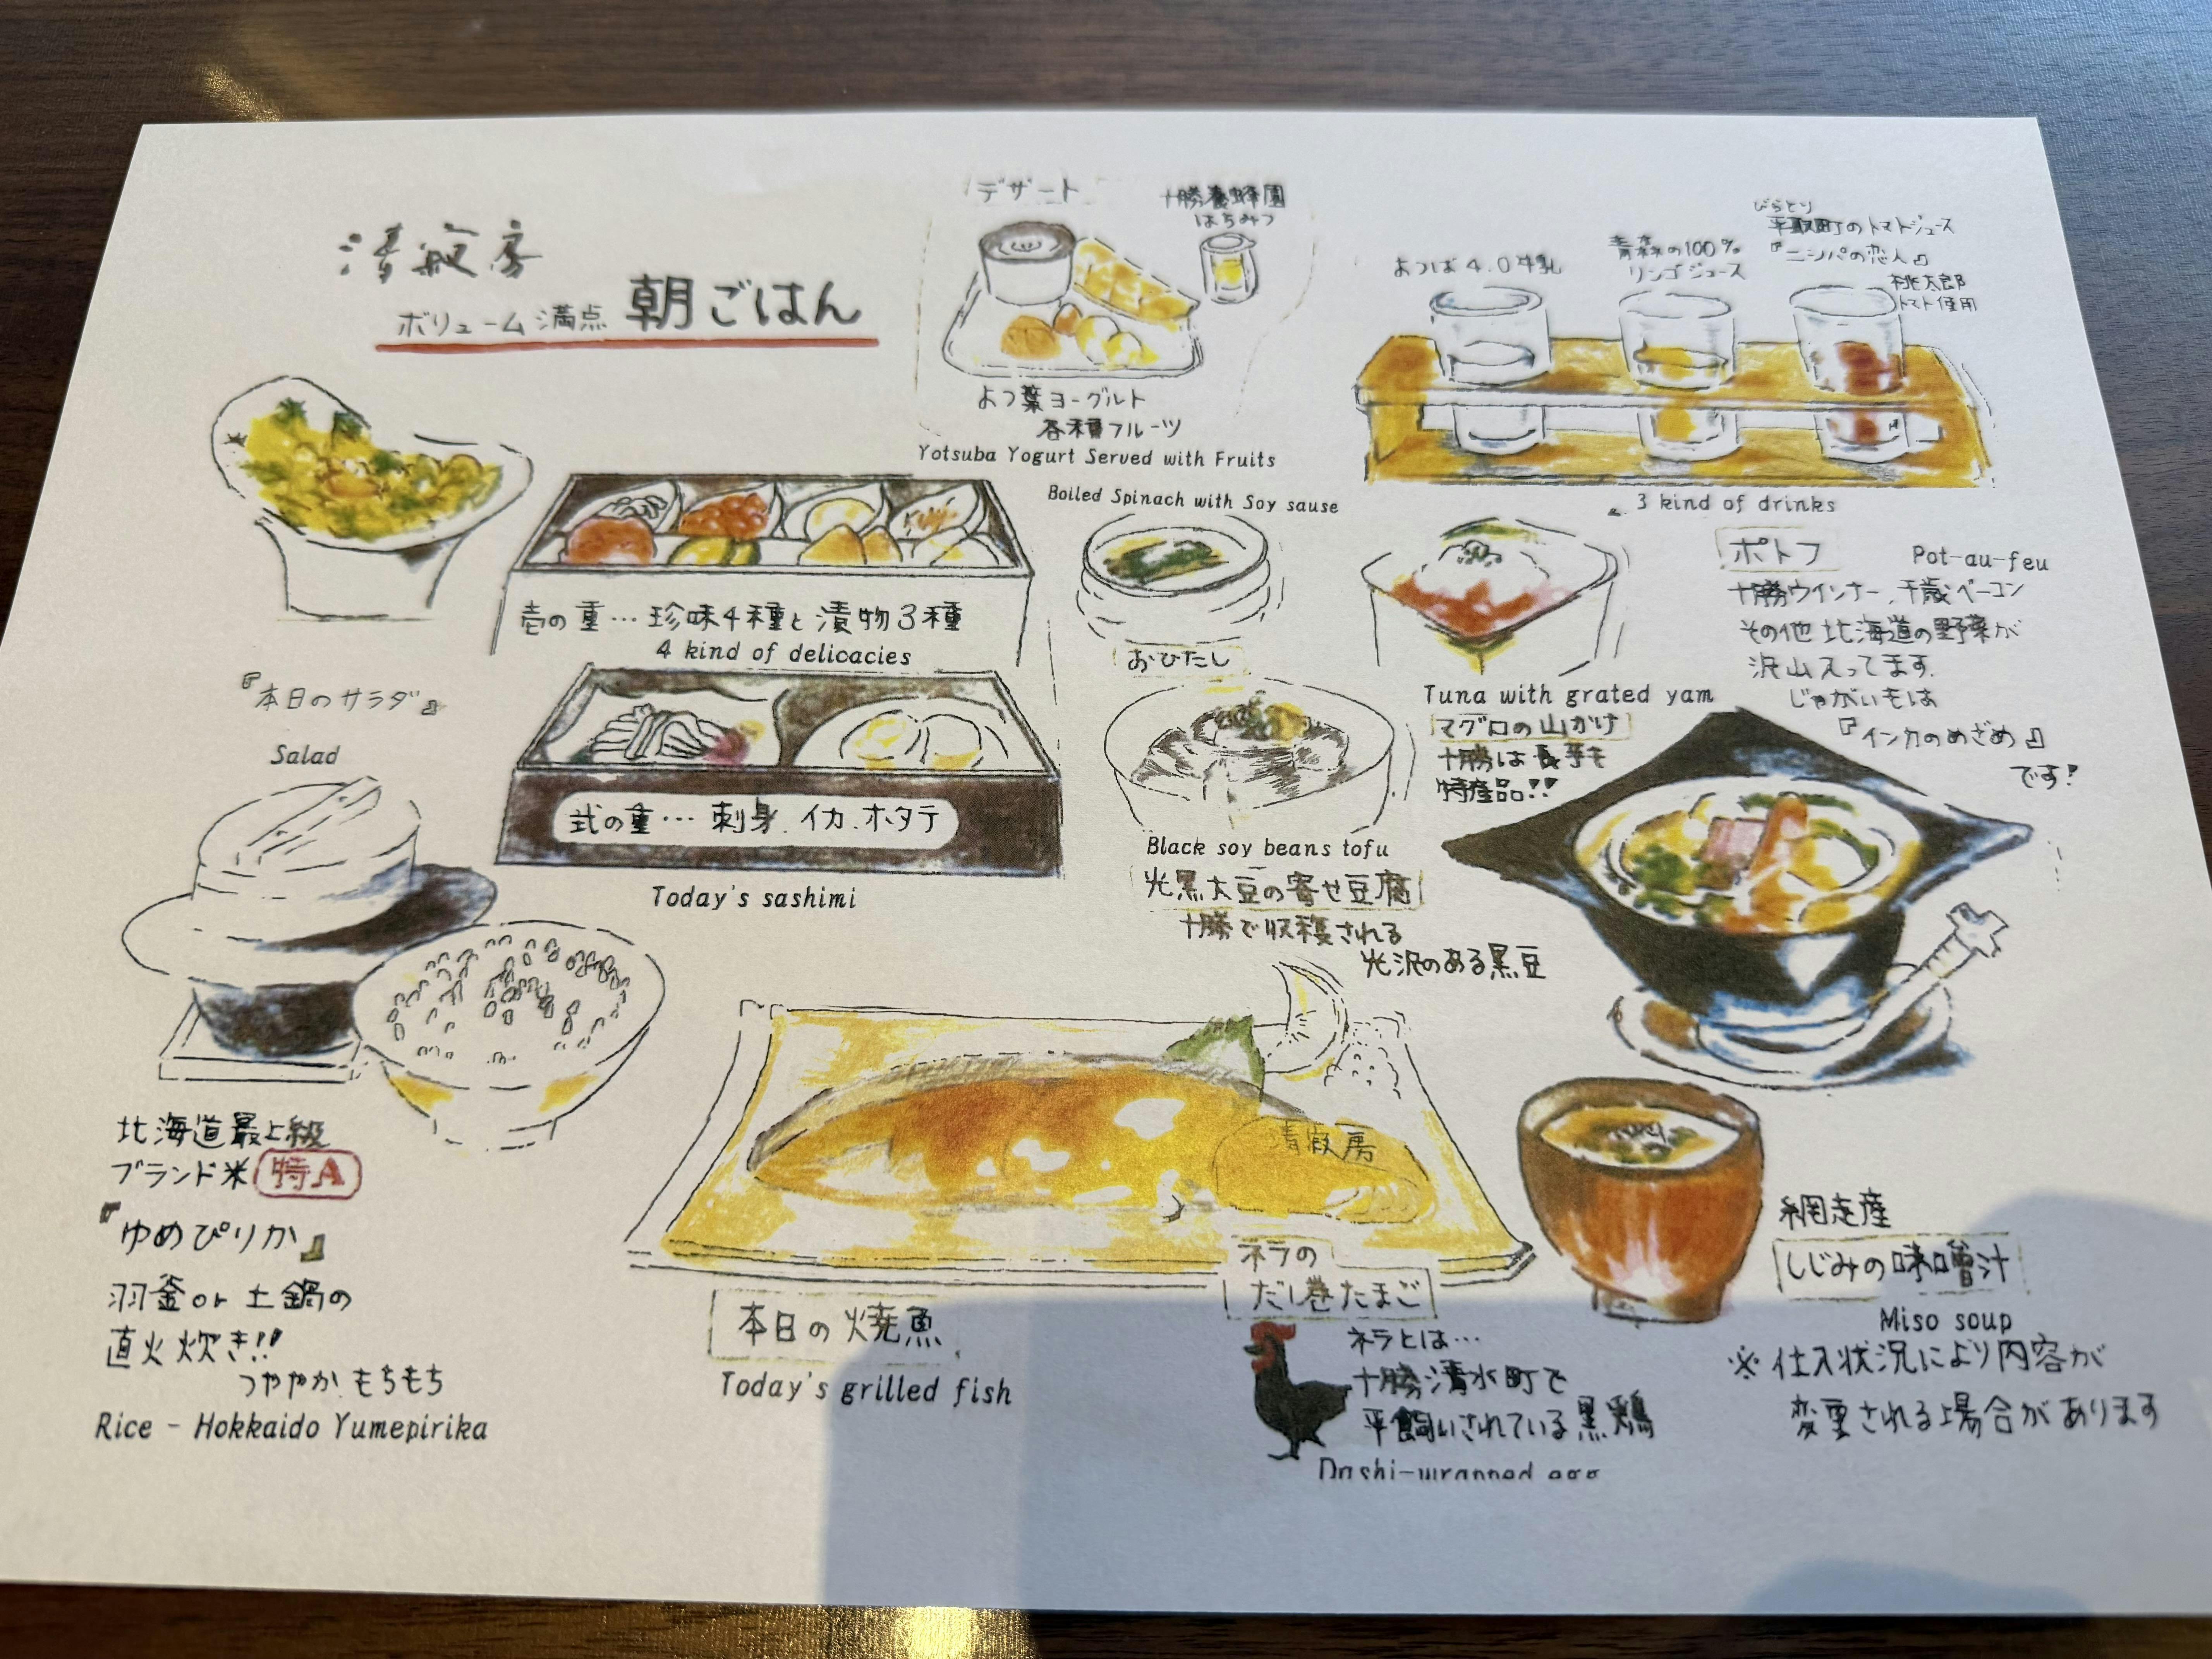 清寂房
ボリューム満点 朝ごはん
デザート
十勝養蜂園
はちみつ
よつ葉ヨーグルト
各種フルーツ
Yotsuba Yogurt Served with Fruits
よつば4.0牛乳
青森の100%
リンゴジュース
びらとり
平取町のトマトジュース
『ニシパの恋人』
桃太郎
トマト使用
3 kind of drinks
『本日のサラダ』
Salad
壱の重…珍味4種と漬物3種
4 kind of delicacies
弐の重…刺身、イカ、ホタテ
Today's sashimi
Boiled Spinach with Soy sause
おひたし
Black soy beans tofu
光黒大豆の寄せ豆腐
十勝で収穫される
光沢のある黒豆
Tuna with grated yam
マグロの山かけ
十勝は長芋も
特産品!!
ポトフ Pot-au-feu
十勝ウインナー、千歳ベーコン
その他北海道の野菜が
沢山入ってます。
じゃがいもは
『インカのめざめ』
です!
北海道最上級
ブランド米 特A
『ゆめぴりか』
羽釜or土鍋の
直火炊き!!
つややか、もちもち
Rice - Hokkaido Yumepirika
清寂房
本日の焼魚
Today's grilled fish
ネラの
だし巻たまご
ネラとは…
十勝清水町で
平飼いされている黒鶏
Dashi-wrapped egg
網走産
しじみの味噌汁
Miso soup
※仕入状況により内容が
変更される場合があります